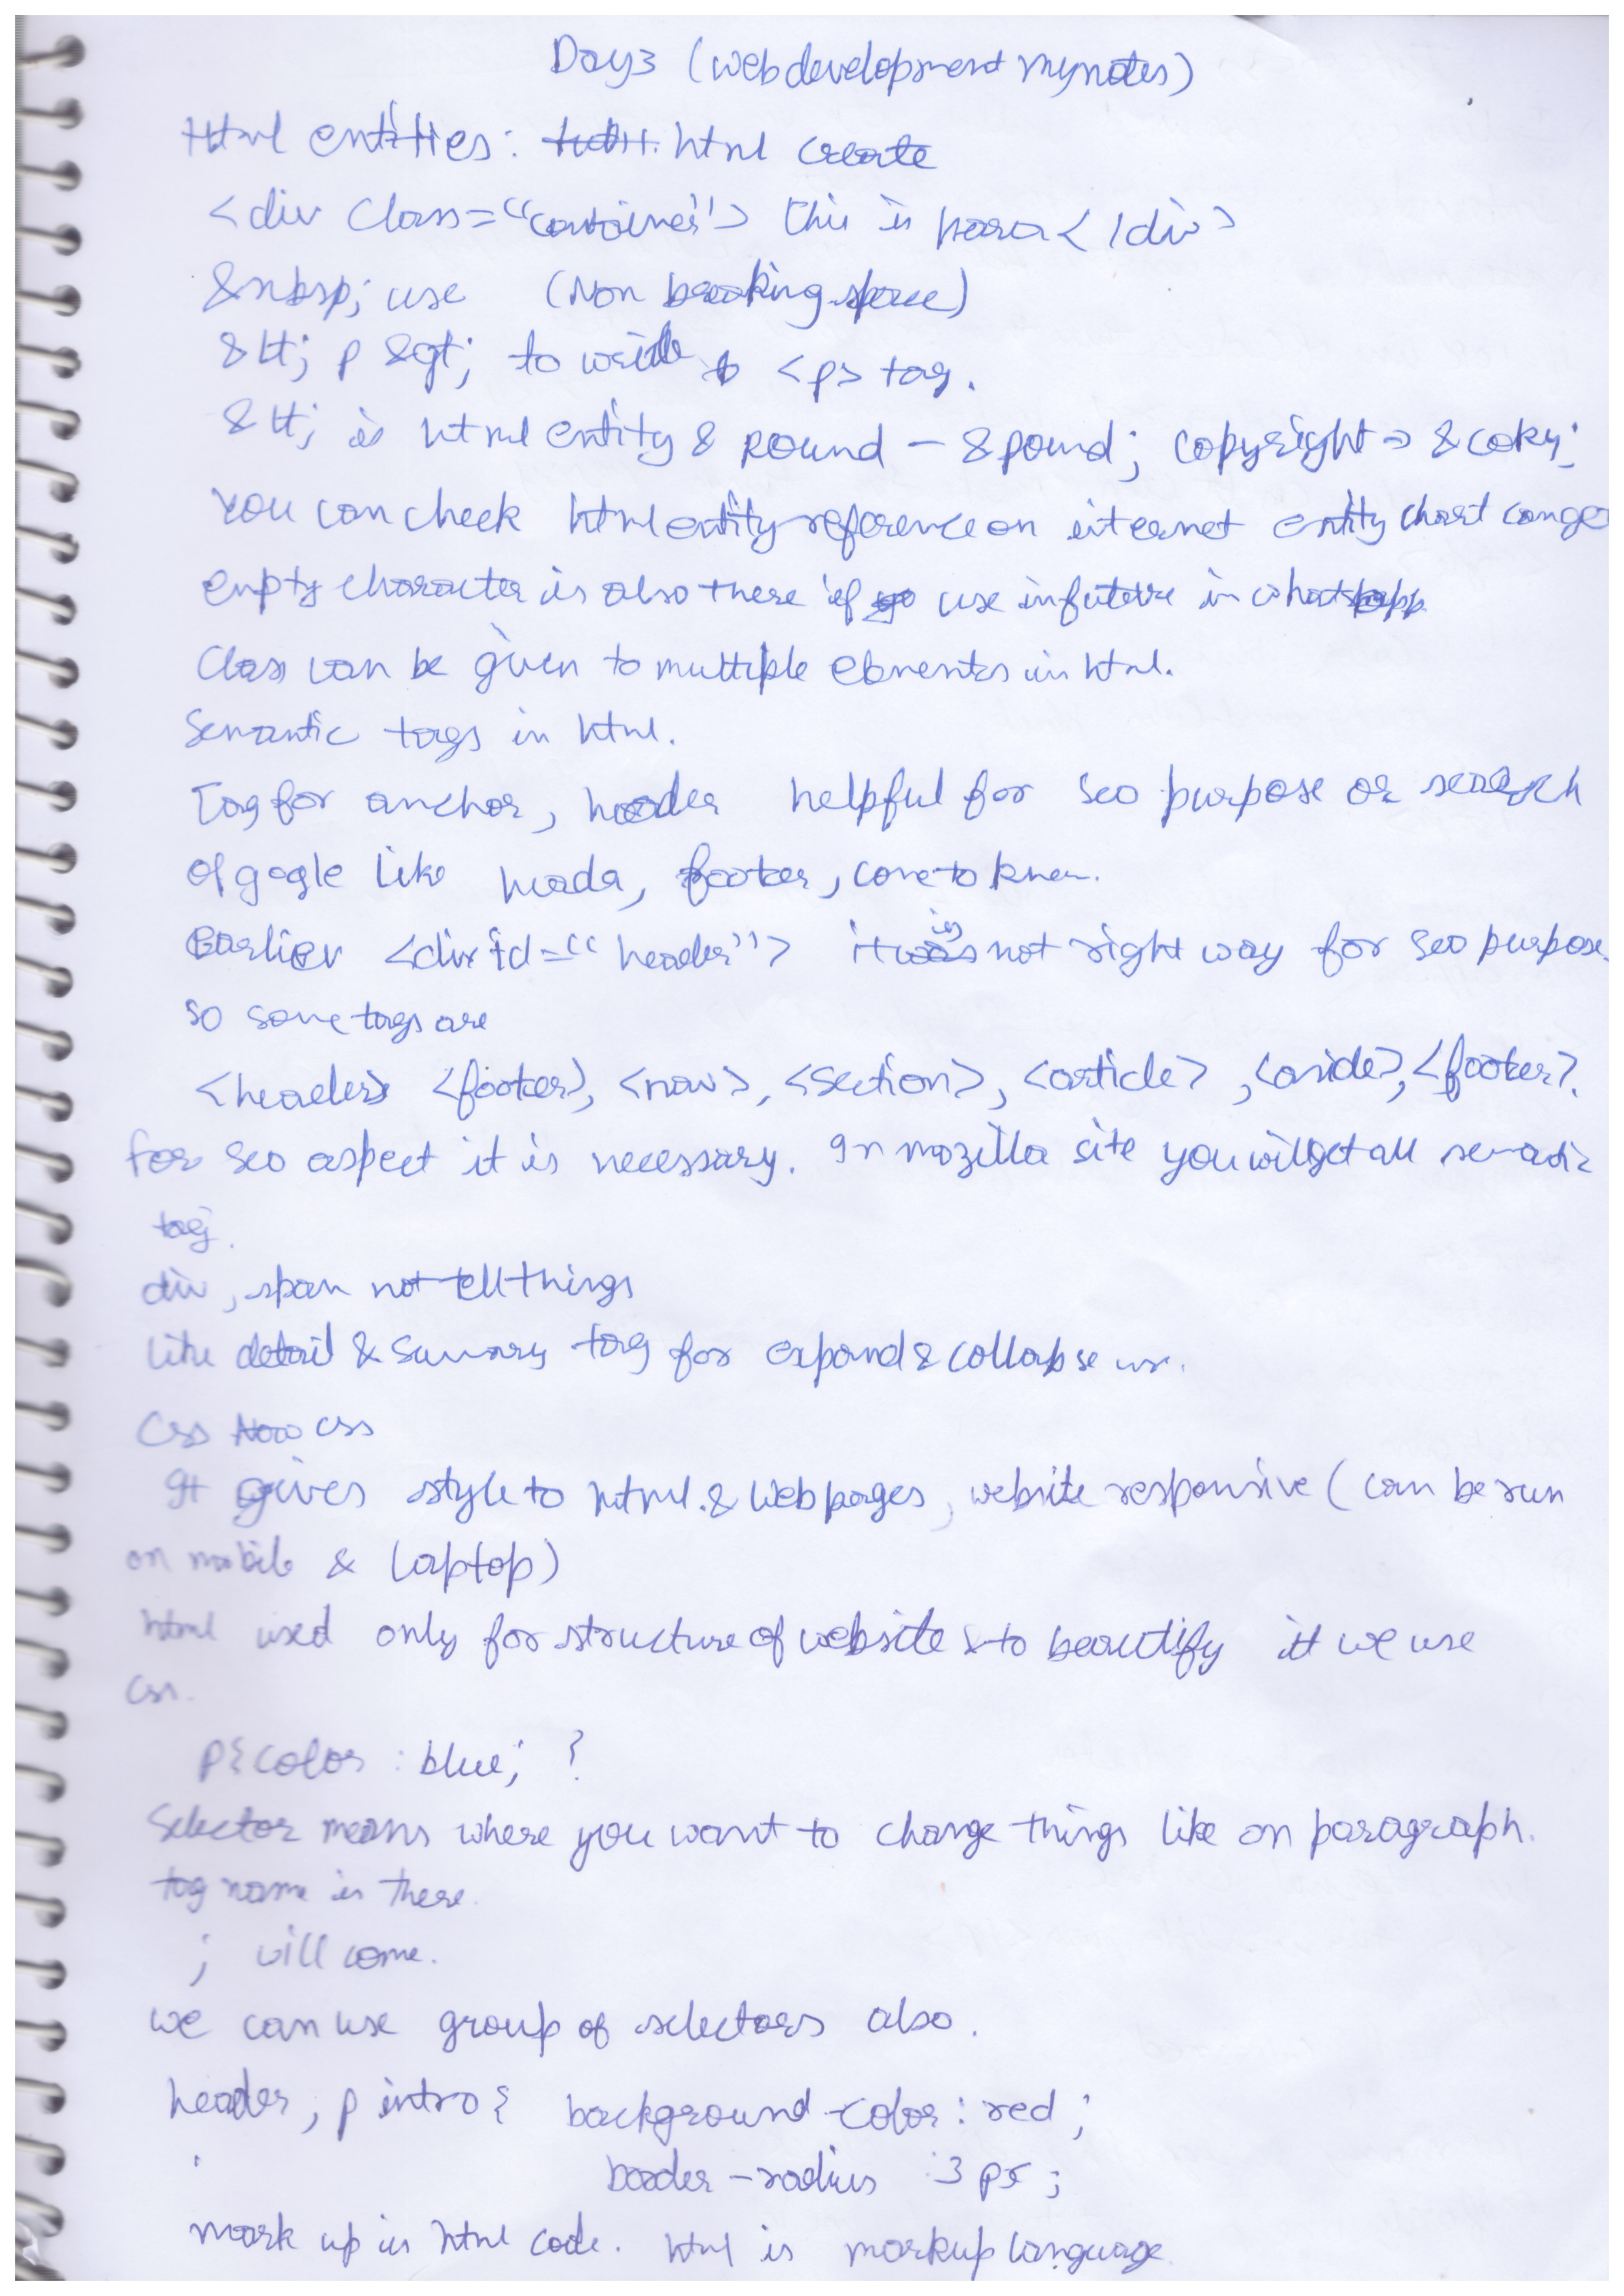 Day3 (web development my notes)
Html entities: html create
<div class="container"> this is para</div>
&nbsp; use (Non breaking space)
&lt; p &gt; to write <p> tag.
&lt; is html entity & pound - &pound; copyright → &copy;
You can check html entity reference on internet entity chart can get
empty character is also there if use in future in whatsapp
Class can be given to multiple elements in html.
Semantic tags in html.
Tag for anchor, header helpful for seo purpose or search
of gogle like heada, footer, come to know.
Earlier <div id="header"> it is not right way for seo purpose.
so some tags are
<header> <footer>, <nav>, <section>, <article>, <aside>, <footer>.
for seo aspect it is necessary. In mozilla site you will get all semantic
tag.
div, span not tell things
like detail & summary tag for expand & collapse use.
Css Now css
It gives style to html. & Web pages, website responsive (can be run
on mobile & laptop)
html used only for structure of website & to beautify it we use
css.
p{color : blue; }
Selector means where you want to change things like on paragraph.
tag name is there.
; will come.
we can use group of selectors also.
header, p intro{ background-color: red;
border-radius :3 px;
mark up is html code. html is markup language